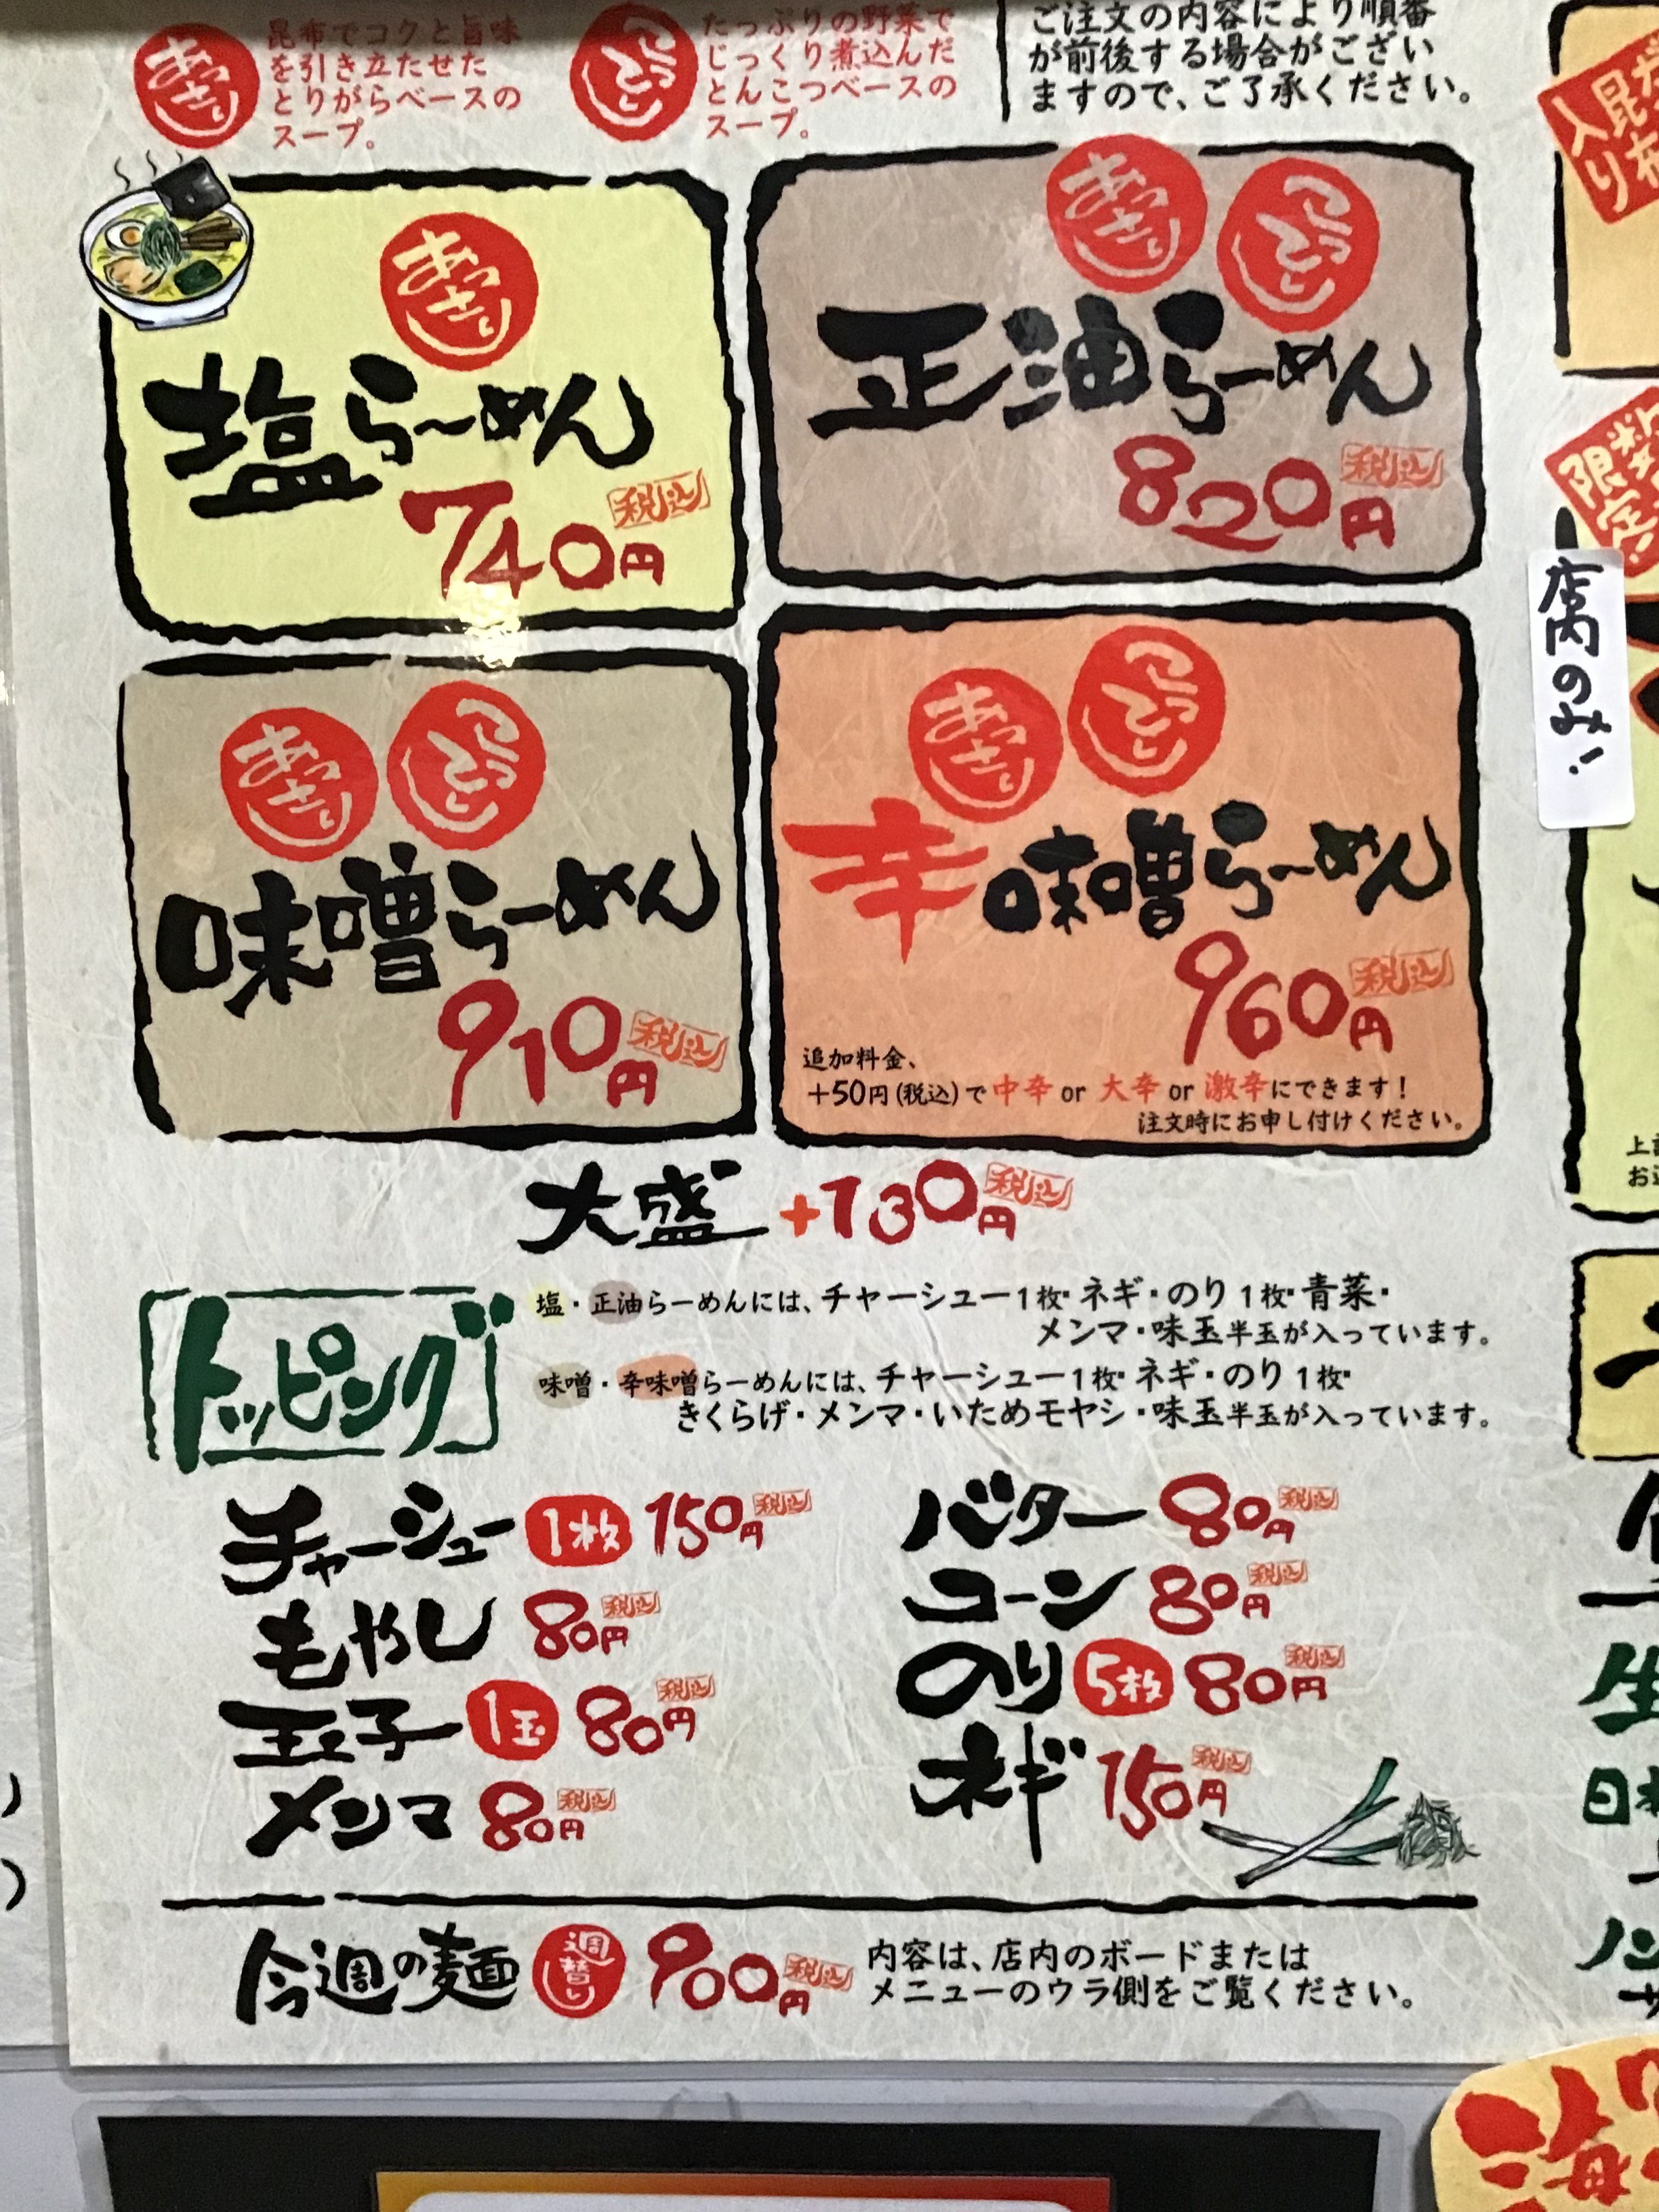 あっさり
昆布でコクと旨味
を引き立たせた
とりがらベースの
スープ。
こってり
たっぷりの野菜で
じっくり煮込んだ
とんこつベースの
スープ。
ご注文の内容により順番
が前後する場合がござい
ますので、ご了承ください。
あっさり
塩らーめん
740円 税込
あっさり こってり
正油らーめん
820円 税込
あっさり こってり
味噌らーめん
910円 税込
あっさり こってり
辛味噌らーめん
960円 税込
追加料金、
+50円(税込)で中辛 or 大辛 or 激辛にできます!
注文時にお申し付けください。
大盛 +130円 税込
トッピング
塩・正油らーめんには、チャーシュー1枚・ネギ・のり1枚・青菜・
メンマ・味玉半玉が入っています。
味噌・辛味噌らーめんには、チャーシュー1枚・ネギ・のり1枚・
きくらげ・メンマ・いためモヤシ・味玉半玉が入っています。
チャーシュー 1枚 150円 税込
もやし 80円 税込
玉子 1玉 80円 税込
メンマ 80円 税込
バター 80円 税込
コーン 80円 税込
のり 5枚 80円 税込
ネギ 150円 税込
今週の麺 週替り 900円 税込
内容は、店内のボードまたは
メニューのウラ側をご覧ください。
昆布
入り
限定
店内のみ!